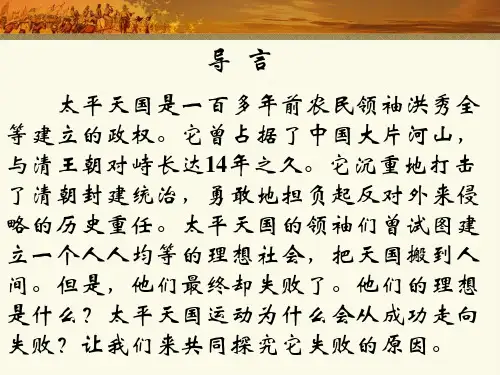 导 言
太平天国是一百多年前农民领袖洪秀全
等建立的政权。它曾占据了中国大片河山，
与清王朝对峙长达14年之久。它沉重地打击
了清朝封建统治，勇敢地担负起反对外来侵
略的历史重任。太平天国的领袖们曾试图建
立一个人人均等的理想社会，把天国搬到人
间。但是，他们最终却失败了。他们的理想
是什么？太平天国运动为什么会从成功走向
失败？让我们来共同探究它失败的原因。